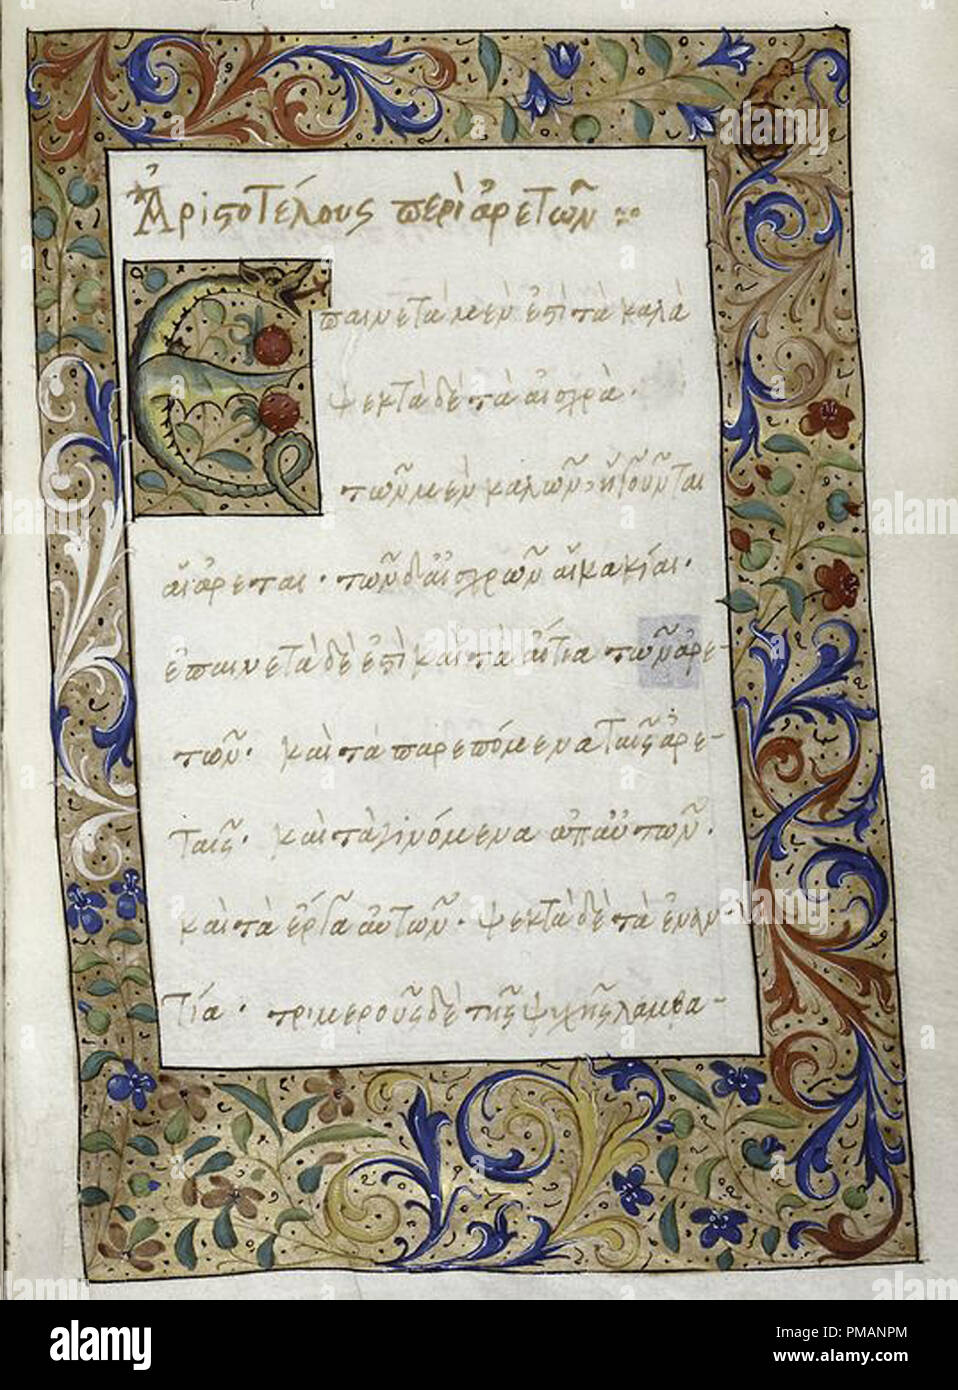 Ἀριστοτέλους περὶ ἀρετῶν :~
Ἐπαινετὰ μὲν ἐστὶ τὰ καλὰ
ψεκτὰ δὲ τὰ αἰσχρὰ·
τῶν μὲν καλῶν, ἡγοῦνται
αἱ ἀρεται· τῶν δ' αἰσχρῶν αἱ κακίαι·
ἐπαινετὰ δὲ ἐστὶ καὶ τὰ αἴτια τῶν ἀρε-
τῶν· καὶ τὰ παρεπόμενα ταῖς ἀρε-
ταῖς· καὶ τὰ γινόμενα ἀπ' αὐτῶν·
καὶ τὰ ἔργα αὐτῶν· ψεκτὰ δὲ τὰ ἐναν-
τία· τριμεροῦς δὲ τῆς ψυχῆς λαμβα-
alamy
Image ID: PMANPM
www.alamy.com